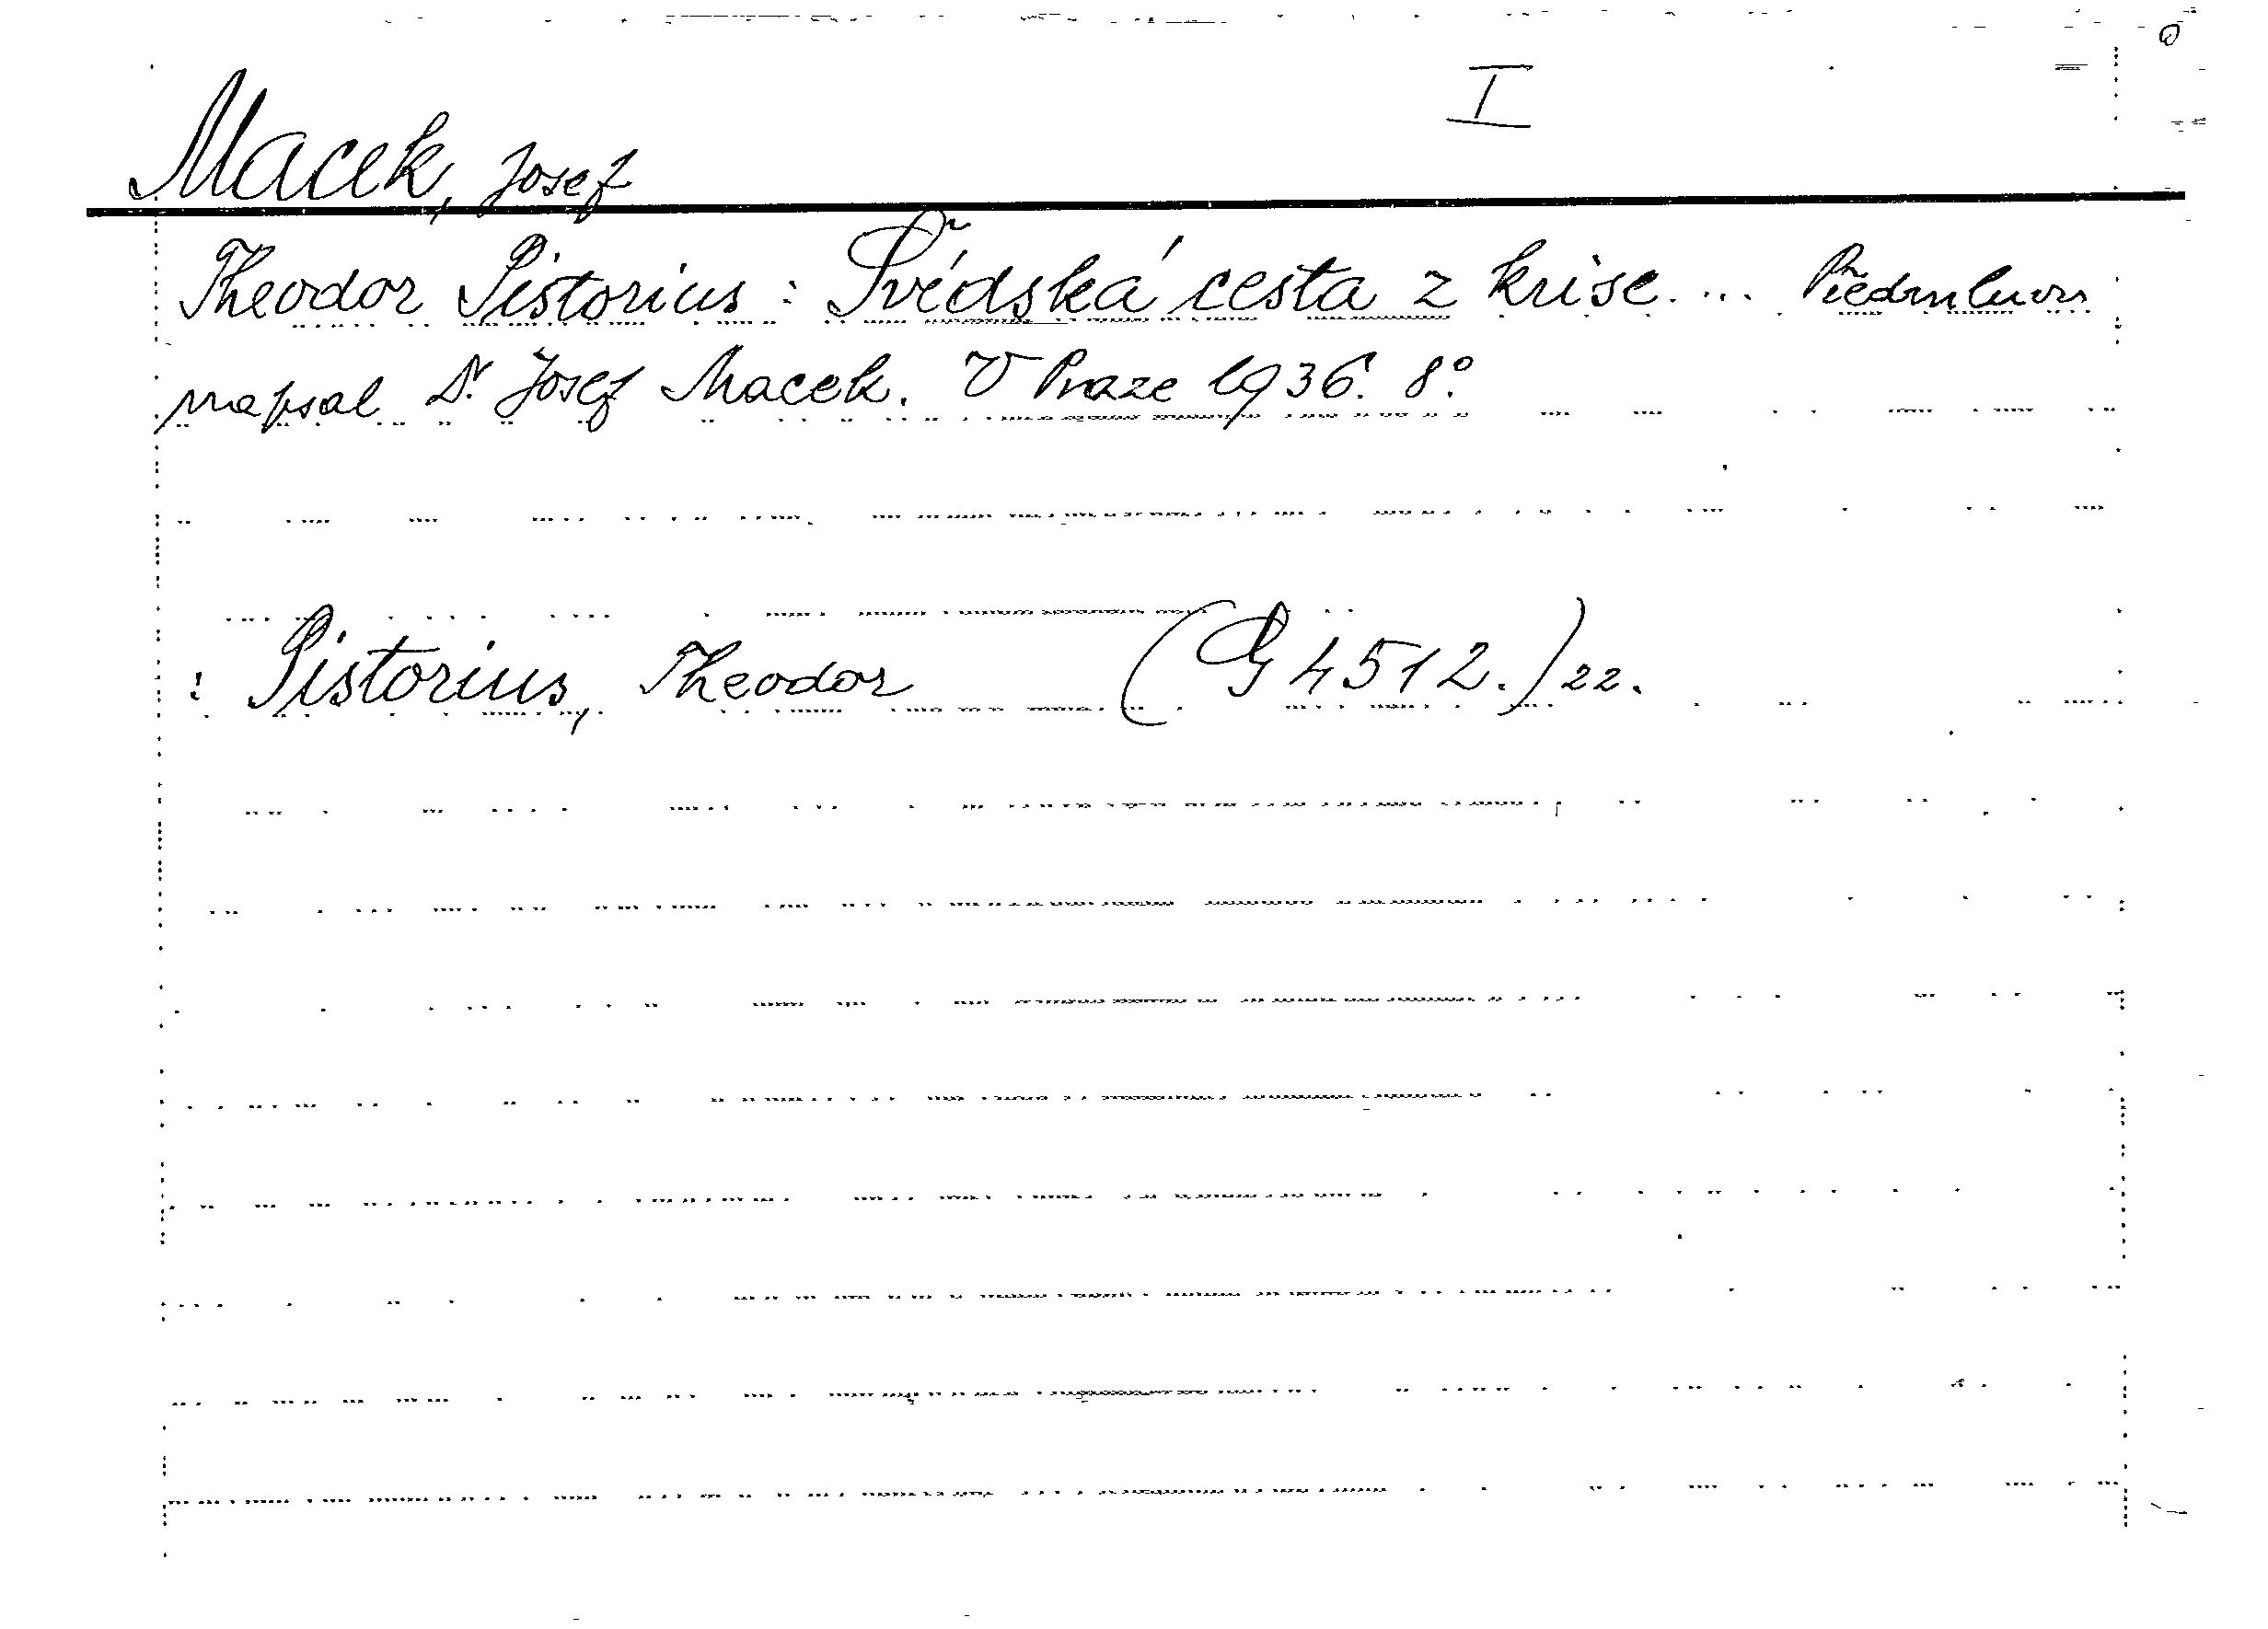 I
Macek, Josef
Theodor Pistorius: Švédská cesta z krise.... Předmluvu
napsal Dr. Josef Macek. V Praze 1936. 8°.
: Pistorius, Theodor (G 4512.)22.